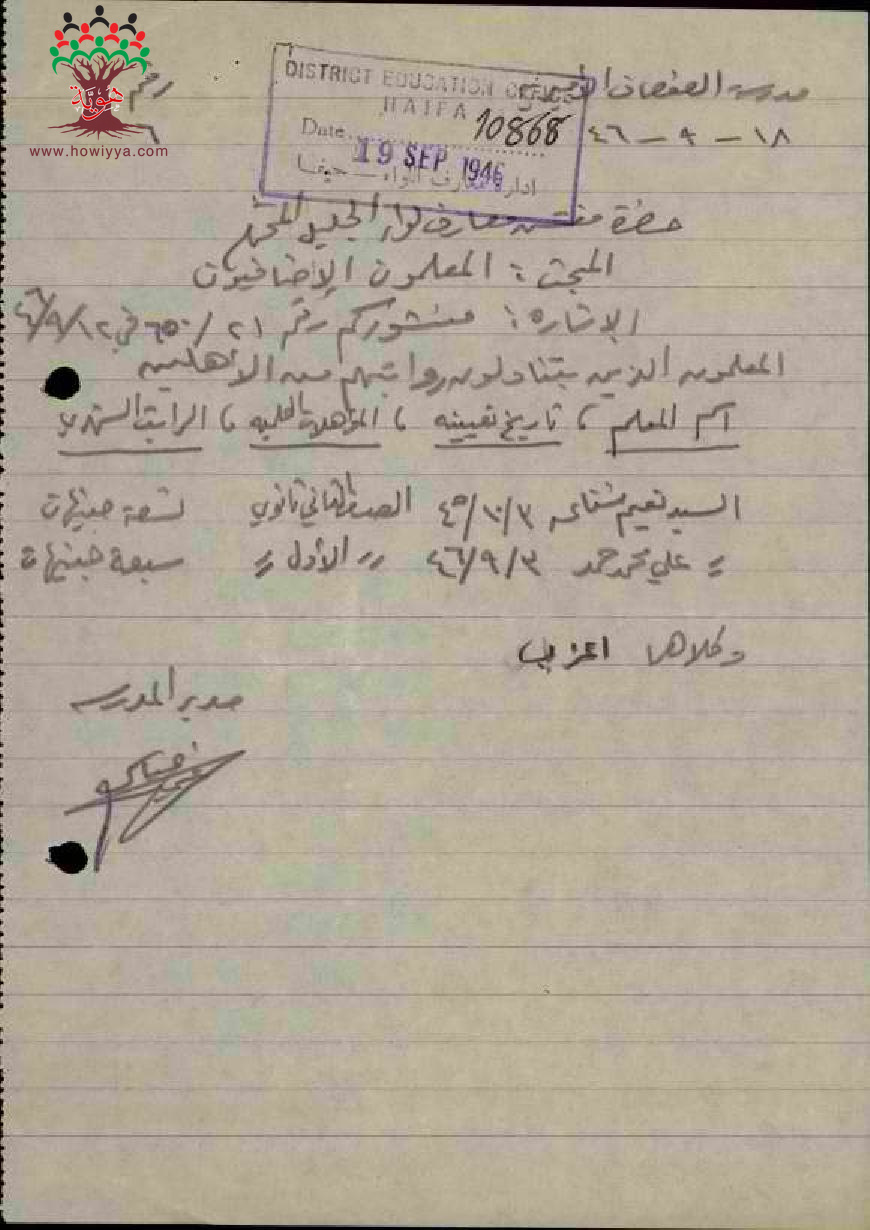 مدرسة الصفصاف الأميرية
رقم
٦
١٨ - ٩ - ٤٦
DISTRICT EDUCATION OFFICE
HAIFA
10868
Date
19 SEP 1946
ادارة معارف اللواء - حيفا
هويّة
www.howiyya.com
حضرة مفتش معارف لواء الجليل المحترم
المبحث : المعلمون الإضافيون
الإشارة : منشوركم رقم ٢١ / ٦٥٠ في ١٢/٩/٤٦
المعلمون الذين يتناولون رواتبهم من الأهلين
اسم المعلم ، تاريخ تعيينه ، المؤهلات العلمية ، الراتب الشهري
السيد نعيم ٣/١٠/٤٥ الصف الثاني ثانوي تسعة جنيهات
〃 علي محمد حمد ٣/٩/٤٦ 〃 الأول 〃 سبعة جنيهات
وكلاهما اعزب
مدير المدرسه